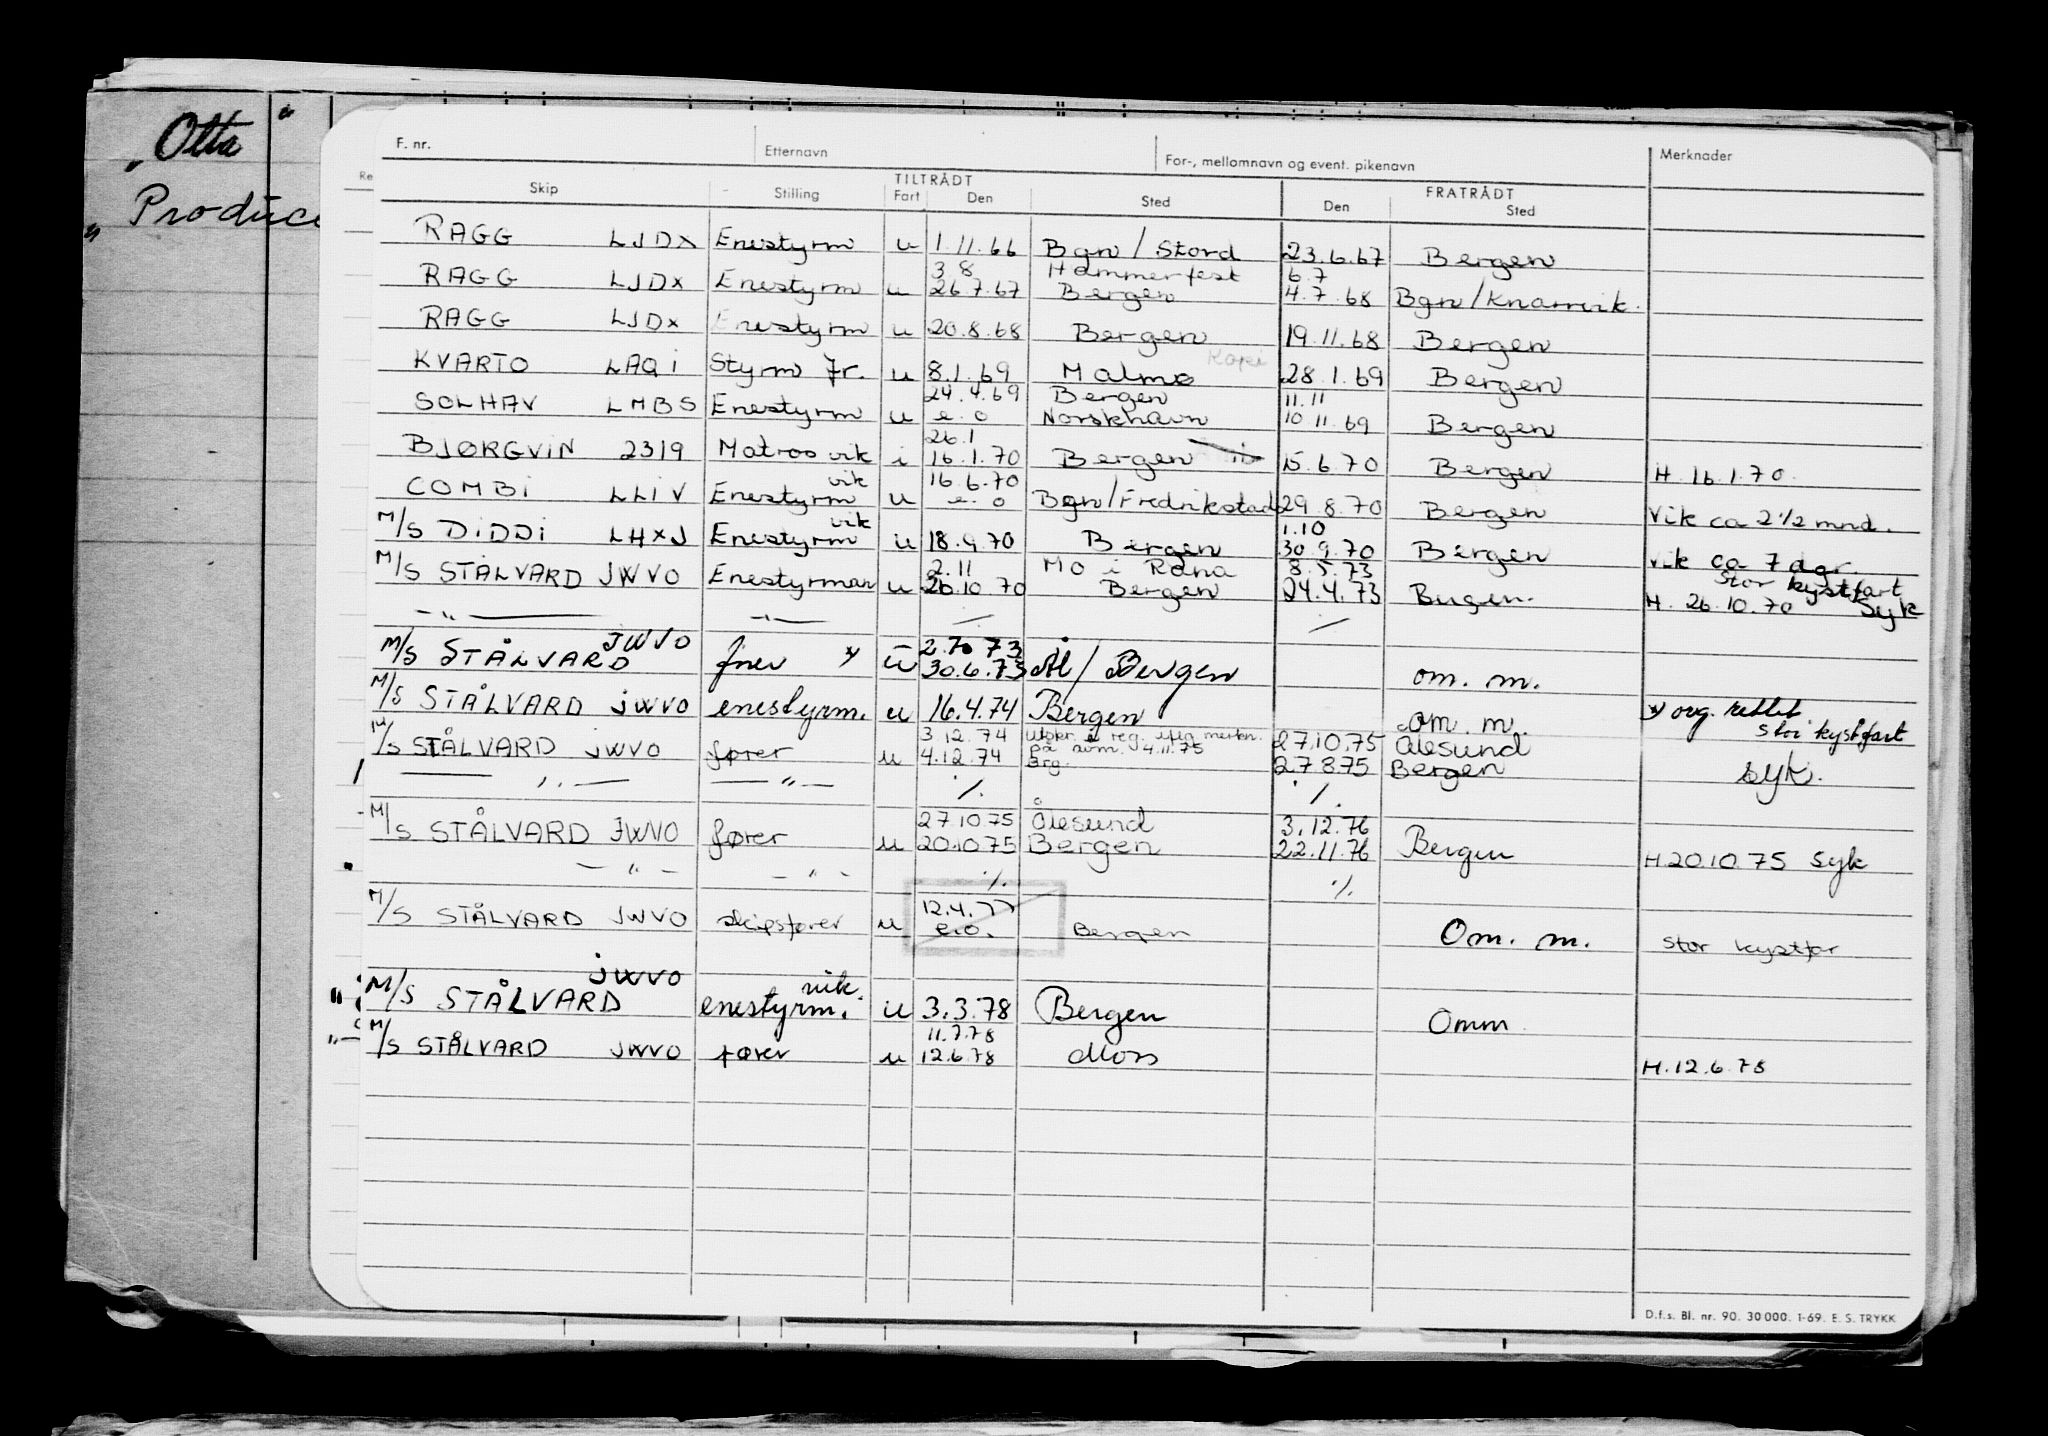 "Otta"
" Produce
F. nr. Etternavn For-, mellomnavn og event. pikenavn Merknader
TILTRÅDT FRATRÅDT
Skip Stilling Fart Den Sted Den Sted
RAGG LJDX Enestyrm u 1.11.66 Bgn/Stord 23.6.67 Bergen
3 8 Hammerfest 6.7
RAGG LJDX Enestyrm u 26.7.67 Bergen 4.7.68 Bgn/Knarrvik.
RAGG LJDX Enestyrm u 20.8.68 Bergen 19.11.68 Bergen
Kopi
KVARTO LAQI Styrm Jr. u 8.1.69 Malmø 28.1.69 Bergen
24.4.69 Bergen 11.11
SOLHAV LMBS Enestyrm u e.o Norskhavn 10 11.69 Bergen
26.1
BJØRGVIN 2319 Matros vik i 16.1.70 Bergen 15.6.70 Bergen H. 16.1.70.
vik 16.6.70
COMBI LLIV Enestyrm u e.o Bgn/Fredrikstad 29.8.70 Bergen Vik ca 2 1/2 mnd.
vik 1.10
M/S DIDDI LHXJ Enestyrm u 18.9.70 Bergen 30.9.70 Bergen Vik ca 7 dgr.
2.11 Mo i Rana 8.5.73 Stor kystfart
M/S STÅLVARD JWVO Enestyrman u 26.10.70 Bergen 24.4.73 Bergen. H. 26.10.70 Syk
— " — — " — / /
JWVO 2.7o 73
M/S STÅLVARD fører * u 30.6.73 Ål/Bergen om. m.
M/S STÅLVARD JWVO enestyrm. u 16.4.74 Bergen om m. * org. rettet
3 12.74 reg. 27.10.75 Ålesund Stor kystfart
M/S STÅLVARD JWVO fører u 4.12.74 4.11.75 27.8.75 Bergen syk.
— " — — " — /. /.
27.10.75 Ålesund 3.12.76
M/S STÅLVARD JWVO fører u 20.10.75 Bergen 22.11.76 Bergen H.20.10.75 Syk
— " — — " — /. /.
12.4.77
M/S STÅLVARD JWVO skipsfører u e.o. Bergen Om. m. Stor kystfar
JWVO vik.
M/S STÅLVARD enestyrm. u 3.3.78 Bergen Omm
11.7.78
M/S STÅLVARD JWVO fører u 12.6.78 Moss H.12.6.78
D.f.s. Bl. nr. 90. 30 000. 1-69. E. S. TRYKK